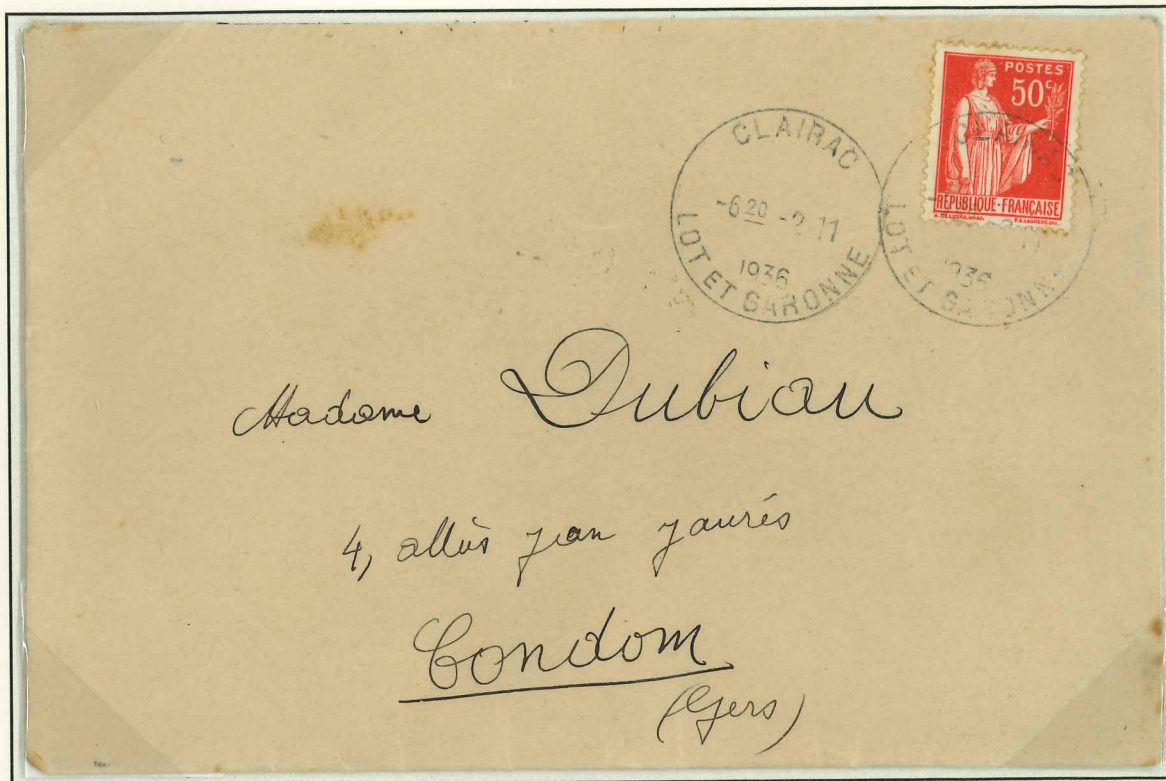 POSTES
50c
RÉPUBLIQUE-FRANÇAISE
CLAIRAC
-6 20 -2.11
1936
LOT ET GARONNE
CLAIRAC
1936
LOT ET GARONNE
Madame Dubiau
4, allées jean jaurés
Condom
(Gers)